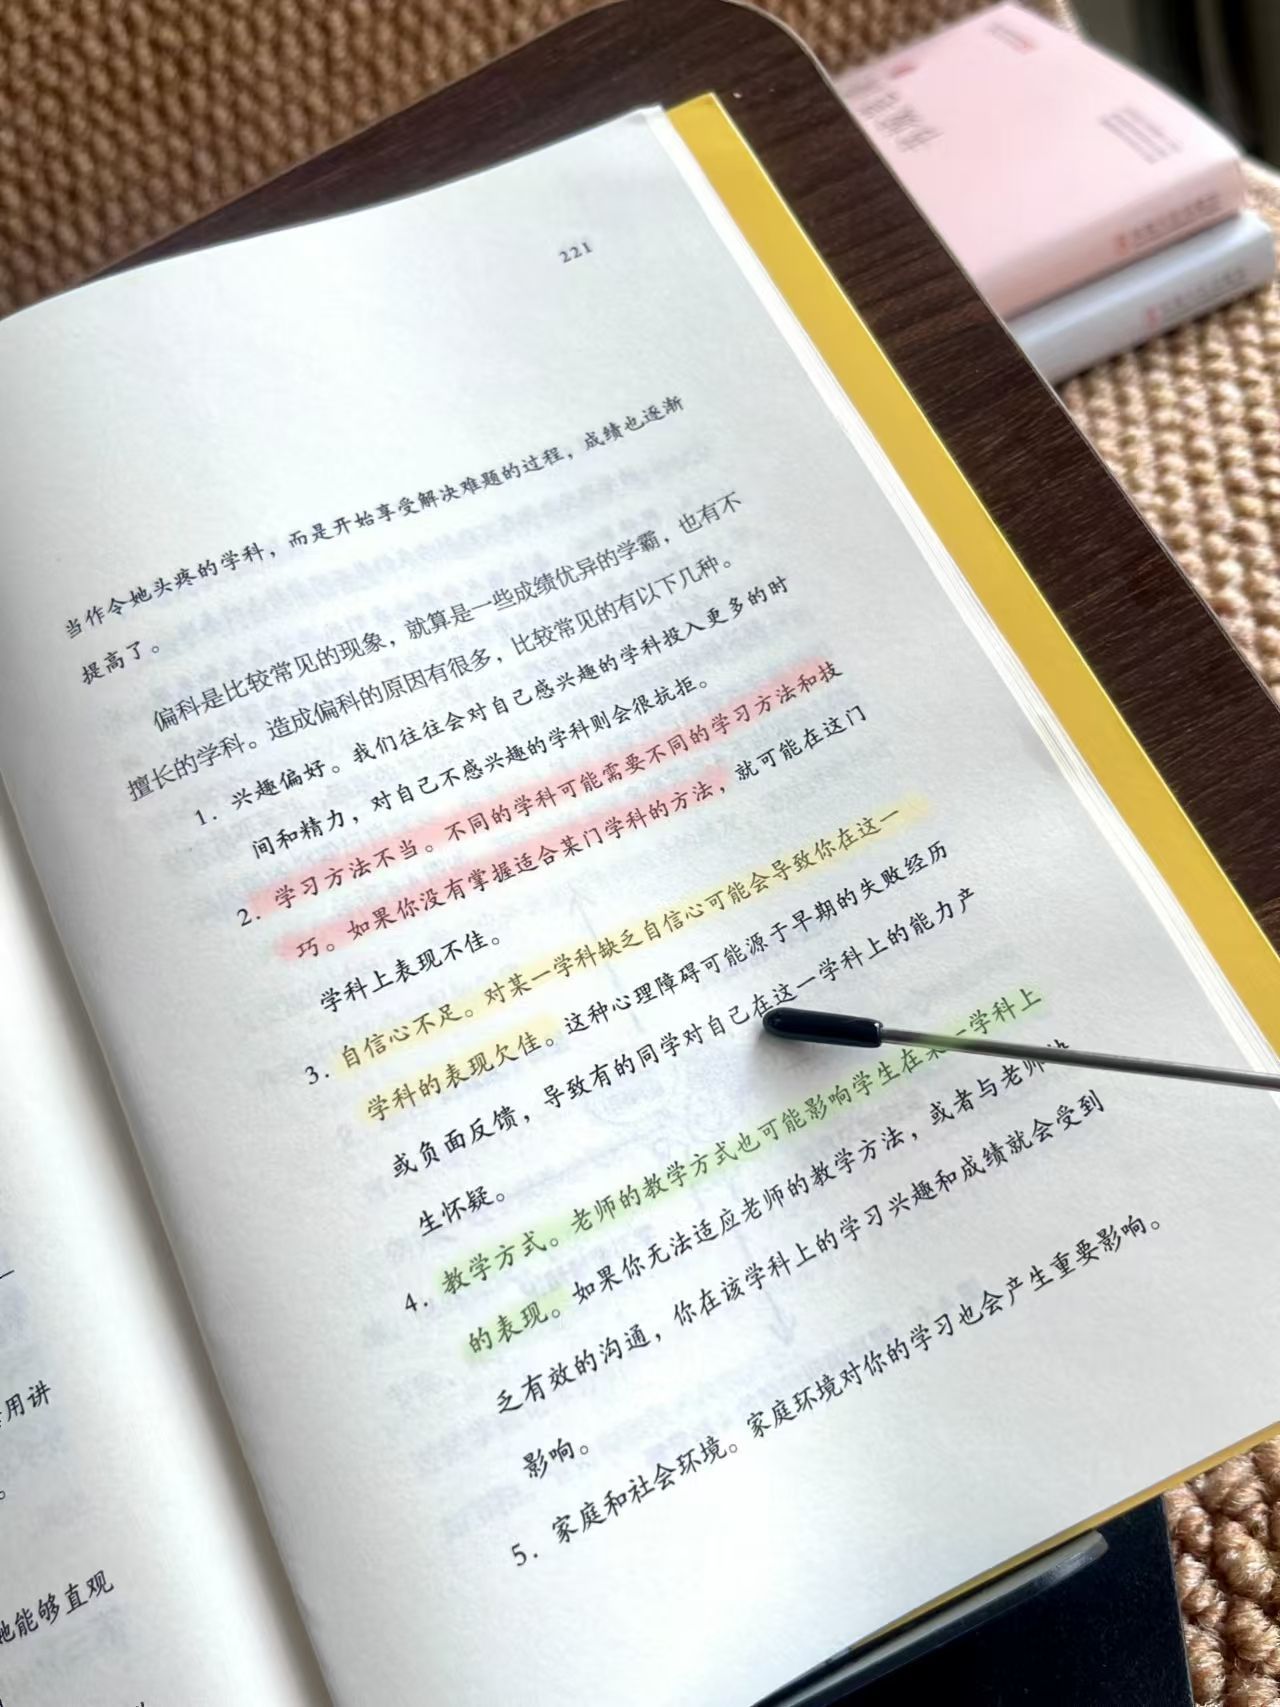 221
当作令她头疼的学科，而是开始享受解决难题的过程，成绩也逐渐
提高了。
偏科是比较常见的现象，就算是一些成绩优异的学霸，也有不
擅长的学科。造成偏科的原因有很多，比较常见的有以下几种。
1. 兴趣偏好。我们往往会对自己感兴趣的学科投入更多的时
间和精力，对自己不感兴趣的学科则会很抗拒。
2. 学习方法不当。不同的学科可能需要不同的学习方法和技
巧。如果你没有掌握适合某门学科的方法，就可能在这门
学科上表现不佳。
3. 自信心不足。对某一学科缺乏自信心可能会导致你在这一
学科的表现欠佳。这种心理障碍可能源于早期的失败经历
或负面反馈，导致有的同学对自己在这一学科上的能力产
生怀疑。
4. 教学方式。老师的教学方式也可能影响学生在某一学科上
的表现。如果你无法适应老师的教学方法，或者与老师
乏有效的沟通，你在该学科上的学习兴趣和成绩就会受到
影响。
5. 家庭和社会环境。家庭环境对你的学习也会产生重要影响。
用讲
。
能够直观